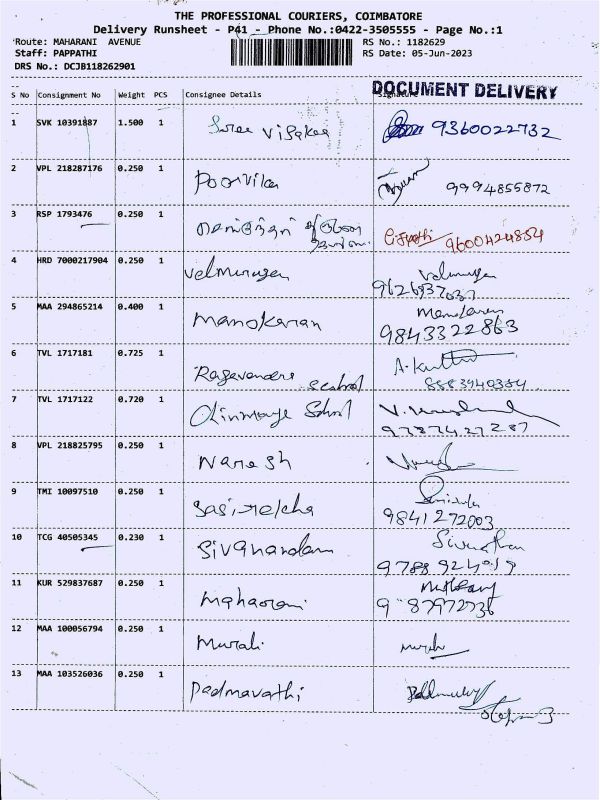 THE PROFESSIONAL COURIERS, COIMBATORE
Delivery Runsheet - P41 - Phone No.:0422-3505555 - Page No.:1
Route: MAHARANI AVENUE RS No.: 1182629
Staff: PAPPATHI RS Date: 05-Jun-2023
DRS No.: DCJB118262901
DOCUMENT DELIVERY
S No Consignment No Weight PCS Consignee Details Signature
1 SVK 10391887 1.500 1 Sree Visakaa 9360022732
2 VPL 218287176 0.250 1 Poorvika 9994855872
3 RSP 1793476 0.250 1 9600424854
4 HRD 7000217904 0.250 1 Velmurugan Velmurugan
9626937037
5 MAA 294865214 0.400 1 Manokaran Manokaran
9843322863
6 TVL 1717181 0.725 1 Ragavendra School
8883940384
7 TVL 1717122 0.720 1 Chinmaya School
8 VPL 218825795 0.250 1 Naresh
9 TMI 10097510 0.250 1 Sasirekha
9841272003
10 TCG 40505345 0.230 1 Sivanandam
11 KUR 529837687 0.250 1 Maharani
12 MAA 100056794 0.250 1 Murali
13 MAA 103526036 0.250 1 Padmavathi